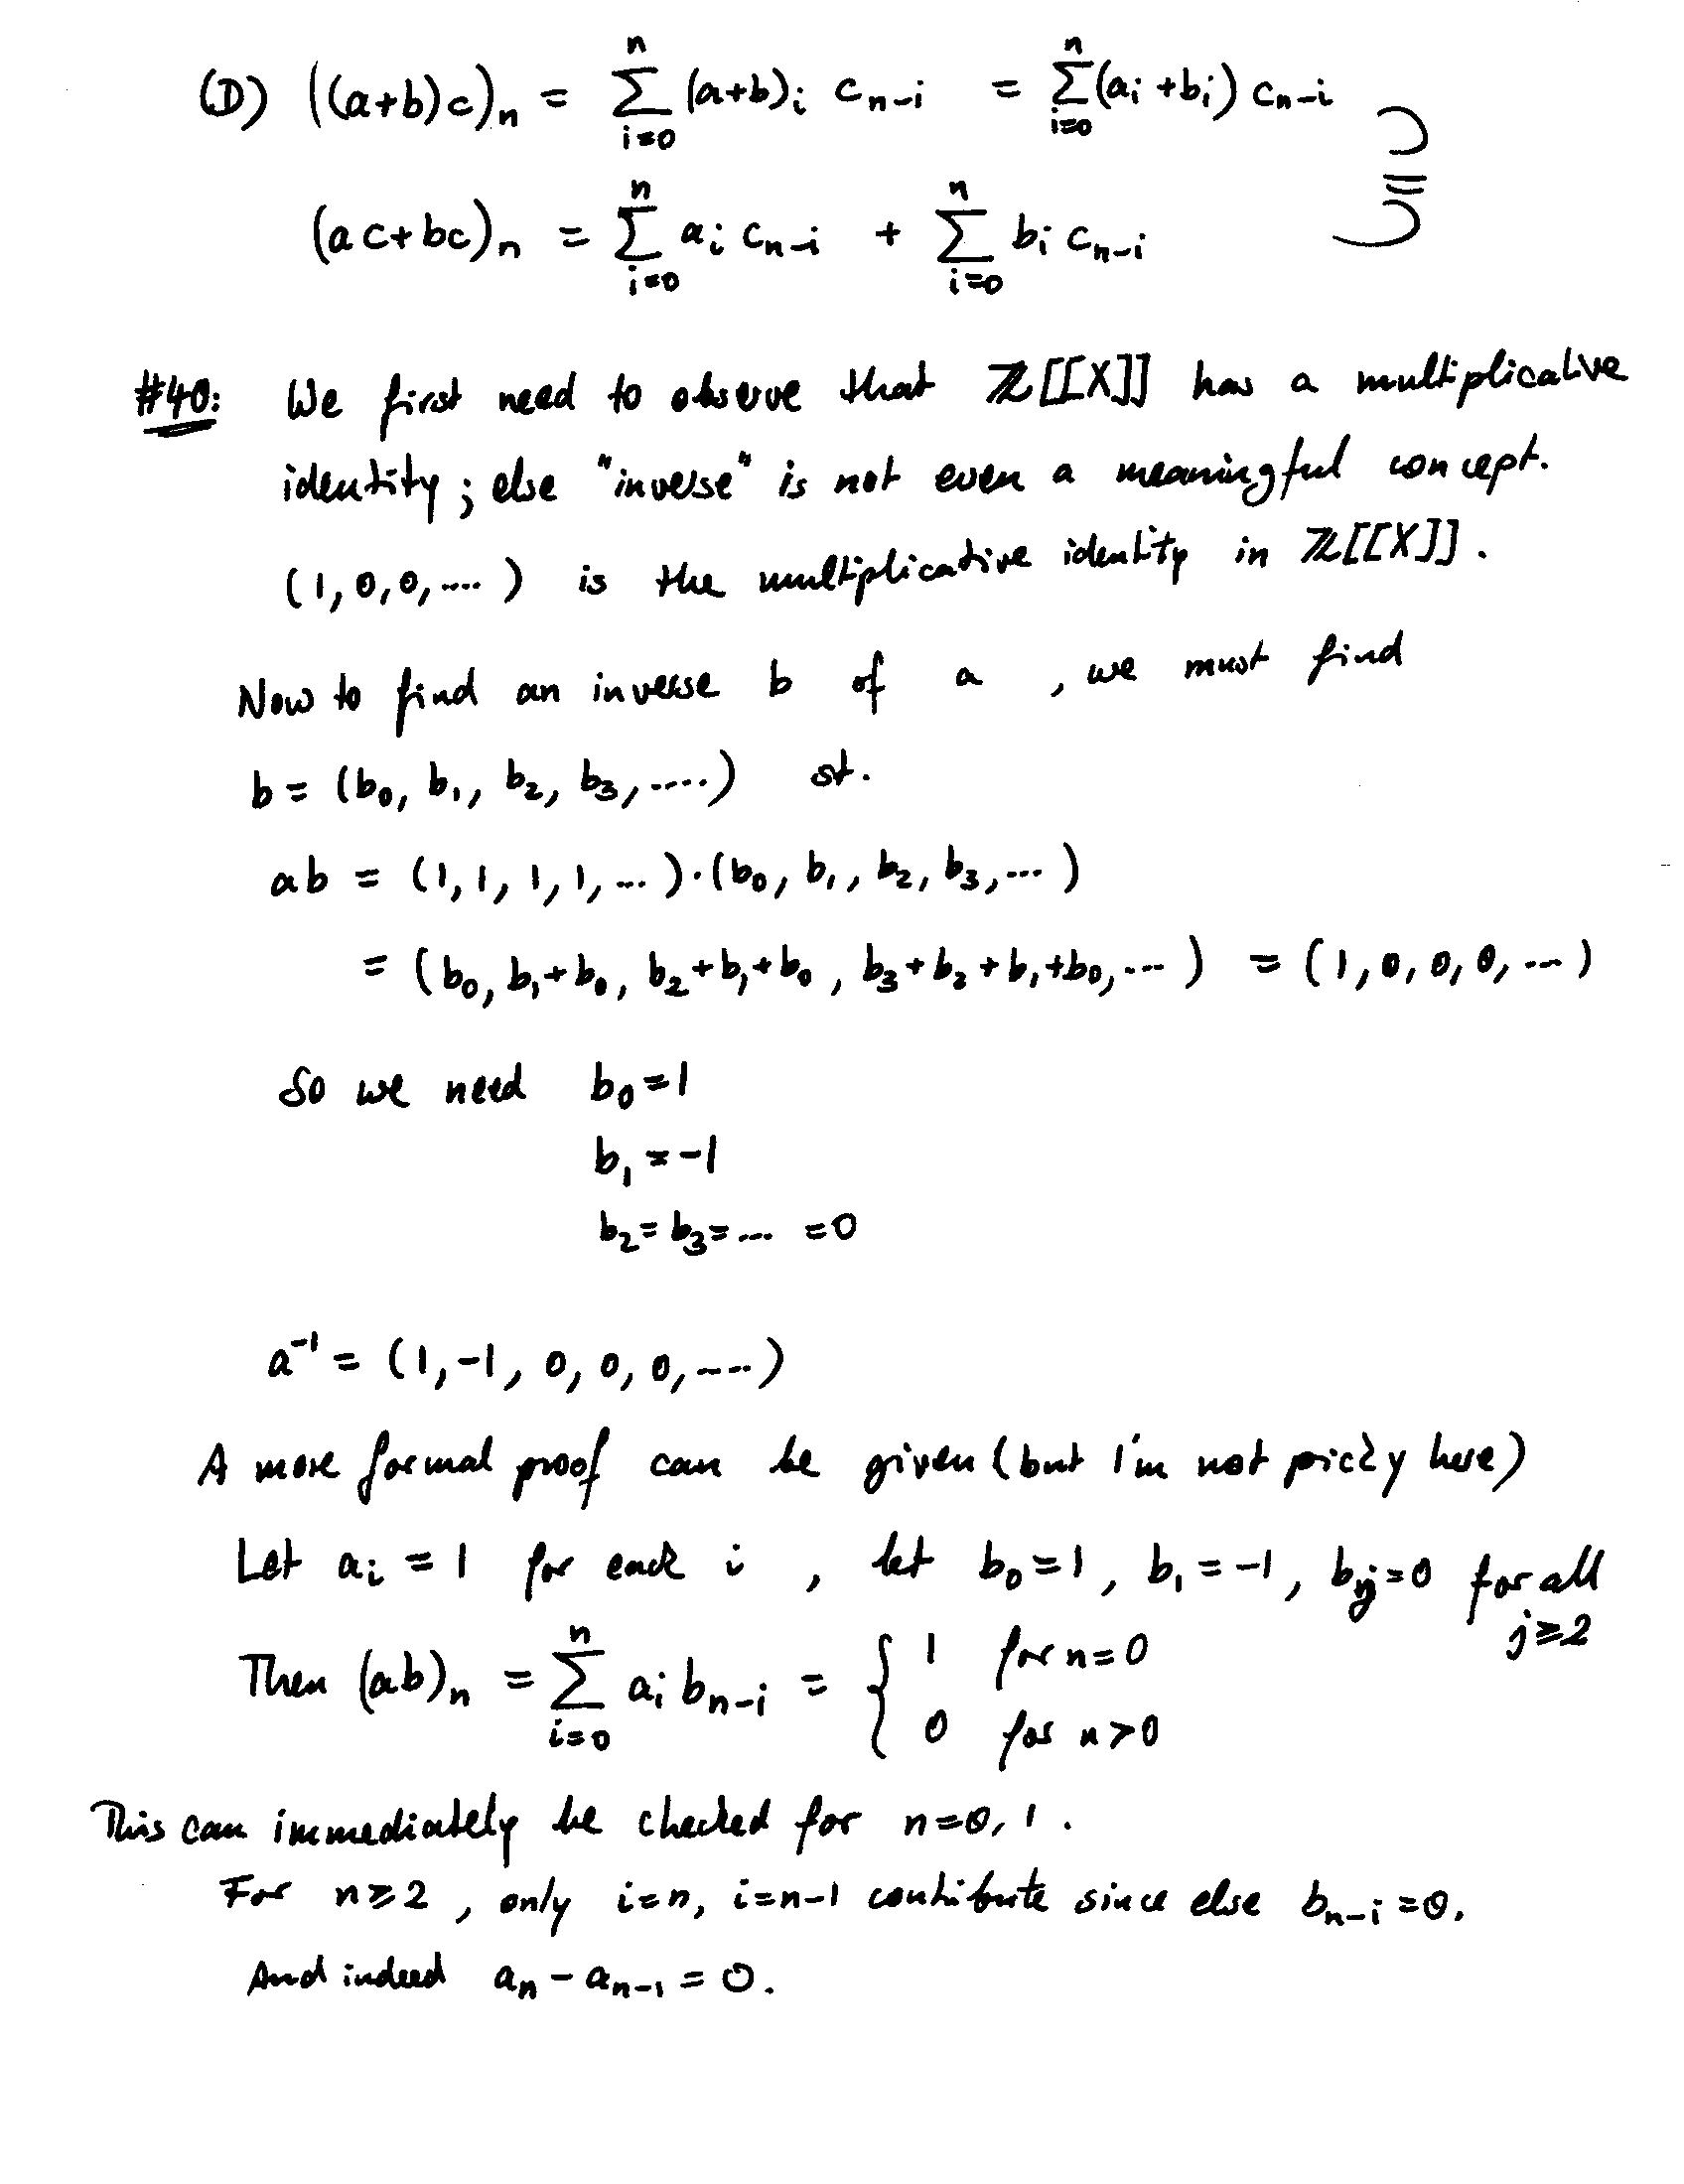 (D) ((a+b)c)_n = \sum_{i=0}^{n} (a+b)_i c_{n-i} = \sum_{i=0}^{n} (a_i + b_i) c_{n-i}
=
(ac+bc)_n = \sum_{i=0}^{n} a_i c_{n-i} + \sum_{i=0}^{n} b_i c_{n-i}
#40: We first need to observe that ℤ[[X]] has a multiplicative
identity; else "inverse" is not even a meaningful concept.
(1,0,0,....) is the multiplicative identity in ℤ[[X]].
Now to find an inverse b of a , we must find
b = (b_0, b_1, b_2, b_3, ....) st.
ab = (1, 1, 1, 1, ...)·(b_0, b_1, b_2, b_3, ...)
= (b_0, b_1+b_0, b_2+b_1+b_0, b_3+b_2+b_1+b_0, ...) = (1, 0, 0, 0, ...)
So we need b_0=1
b_1=-1
b_2=b_3=... =0
a^{-1} = (1, -1, 0, 0, 0, ....)
A more formal proof can be given (but I'm not picky here)
Let a_i = 1 for each i , let b_0=1, b_1=-1, b_j=0 for all
j≥2
Then (ab)_n = \sum_{i=0}^{n} a_i b_{n-i} = { 1 for n=0
0 for n>0
This can immediately be checked for n=0, 1.
For n≥2, only i=n, i=n-1 contribute since else b_{n-i}=0.
And indeed a_n - a_{n-1} = 0.